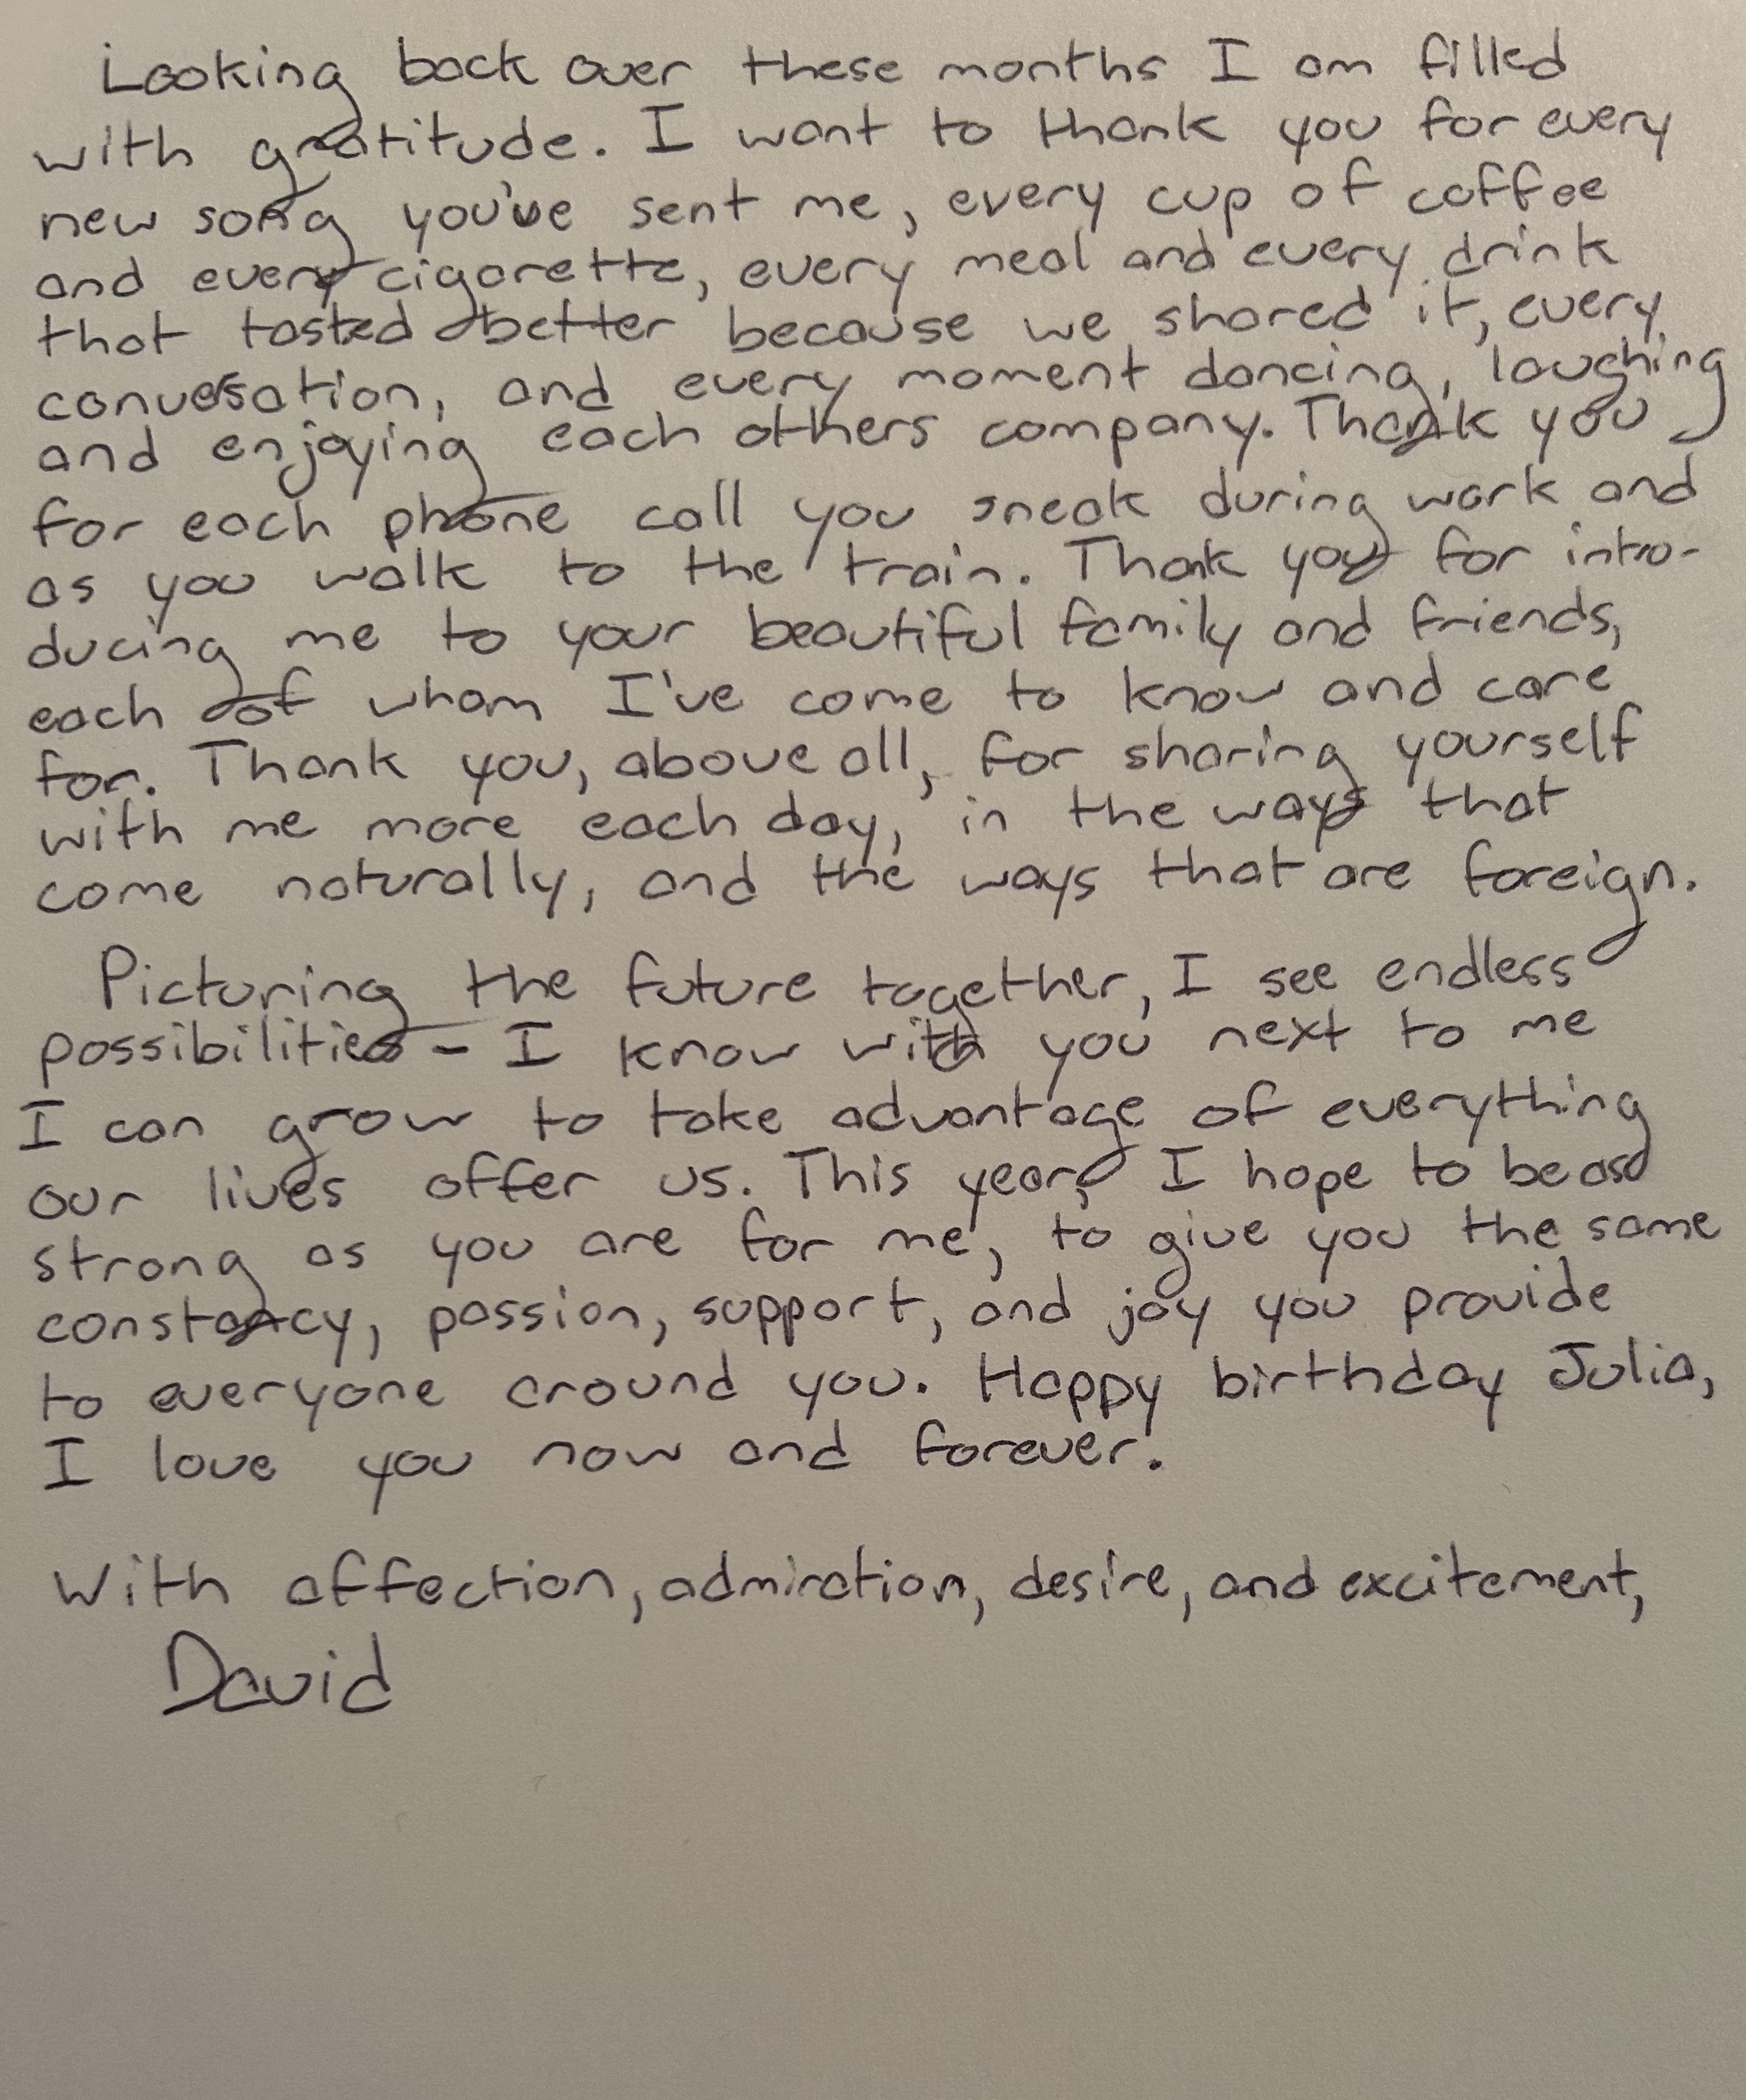 Looking back over these months I am filled
with gratitude. I want to thank you for every
new song you've sent me, every cup of coffee
and every cigarette, every meal and every drink
that tasted better because we shared it, every
conversation, and every moment dancing, laughing
and enjoying each others company. Thank you
for each phone call you sneak during work and
as you walk to the train. Thank you for intro-
ducing me to your beautiful family and friends,
each of whom I've come to know and care
for. Thank you, above all, for sharing yourself
with me more each day, in the ways that
come naturally, and the ways that are foreign.
Picturing the future together, I see endless
possibilities - I know with you next to me
I can grow to take advantage of everything
our lives offer us. This year, I hope to be as
strong as you are for me, to give you the same
constancy, passion, support, and joy you provide
to everyone around you. Happy birthday Julia,
I love you now and forever.
With affection, admiration, desire, and excitement,
David